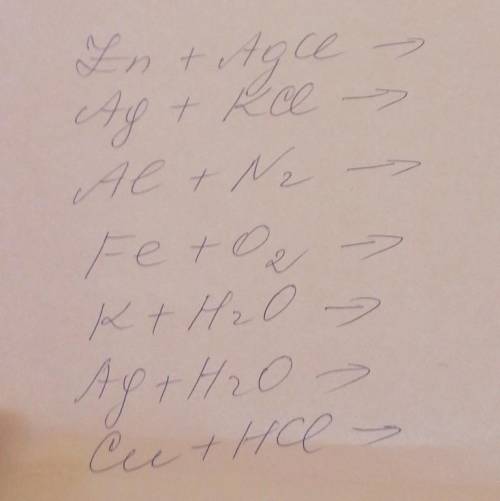 Zn + AgCl →
Ag + KCl →
Al + N₂ →
Fe + O₂ →
K + H₂O →
Ag + H₂O →
Cu + HCl →